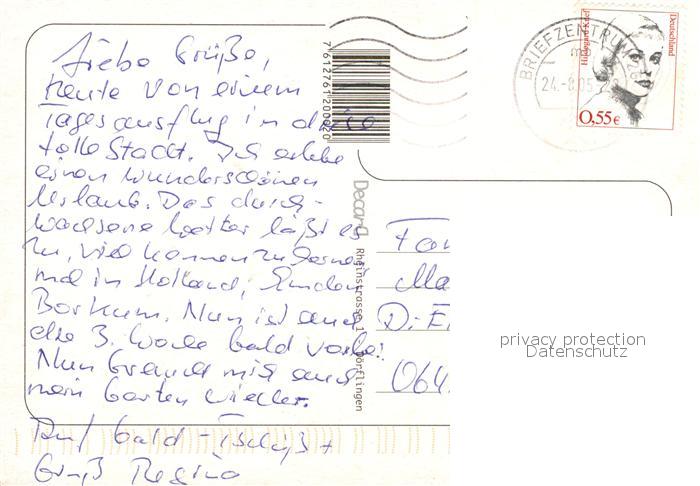 Liebe Grüße,
heute von einem
Tagesausflug in diese
tolle Stadt. Ich erlebe
einen wunderschönen
Urlaub. Das durch-
wachsene Wetter läßt es
zu, viel kennenzulernen
mal in Holland, Emden
Borkum. Nun ist auch
die 3. Woche bald vorbei.
Nun braucht mich auch
mein Garten wieder.
Auf bald - Tschüß +
Gruß Regina
7612761200020
Decard
Rheinstrasse 1
Dörflingen
BRIEFZENTRUM 26
mb
24.-8.05
Deutschland
Hildegard Knef
0,55€
Fam
Ma
D. E
064
privacy protection
Datenschutz